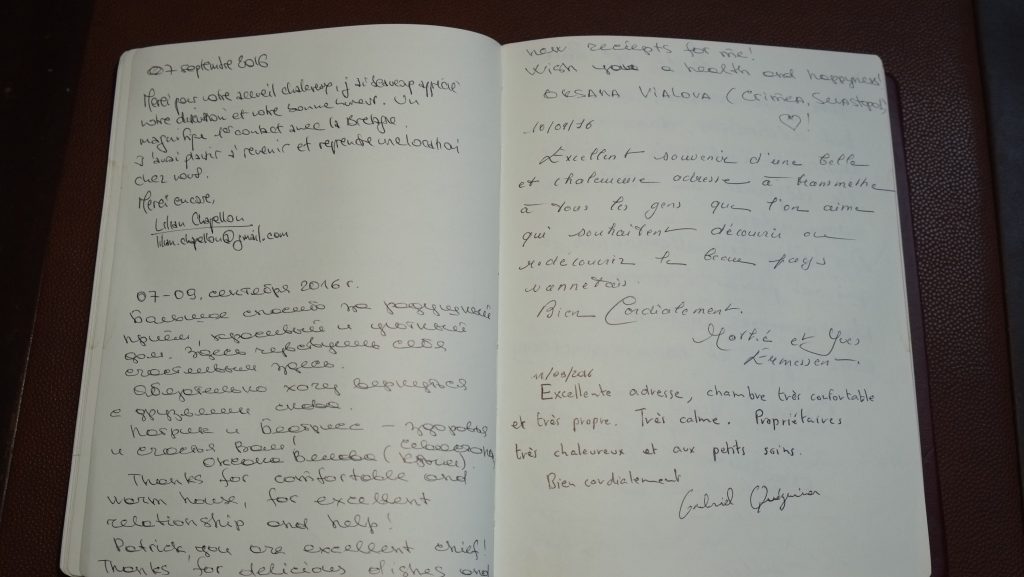 07 septembre 2016
Merci pour votre accueil chaleureux, j'ai beaucoup apprécié
votre discrétion et votre bonne humeur. Un
magnifique 1er contact avec la Bretagne.
J'aurai plaisir à revenir et reprendre une location
chez vous.
Merci encore,
Lilian Chapellon
lilian.chapellon@gmail.com
07-09, сентября 2016 г.
Большое спасибо за радушный
приём, красивый и уютный
дом. Здесь чувствуешь себя
счастливым здесь.
Обязательно хочу вернуться
с друзьями снова.
Патрик и Беатрисс – здоровья
и счастья Вам! (Севастополь,
Оксана Вялова Крым).
Thanks for comfortable and
warm house, for excellent
relationship and help!
Patrick, you are excellent chief!
Thanks for delicious dishes and
new reciepts for me!
Wish you a health and happyness!
OKSANA VIALOVA (Crimea, Sevastopol)
♡!
10/09/16
Excellent souvenir d'une belle
et chaleureuse adresse à transmettre
à tous les gens que l'on aime
qui souhaitent découvrir ou
redécouvrir le beau pays
vannetais.
Bien Cordialement.
et Yves
11/09/2016
Excellente adresse, chambre très confortable
et très propre. Très calme. Propriétaires
très chaleureux et aux petits soins.
Bien cordialement